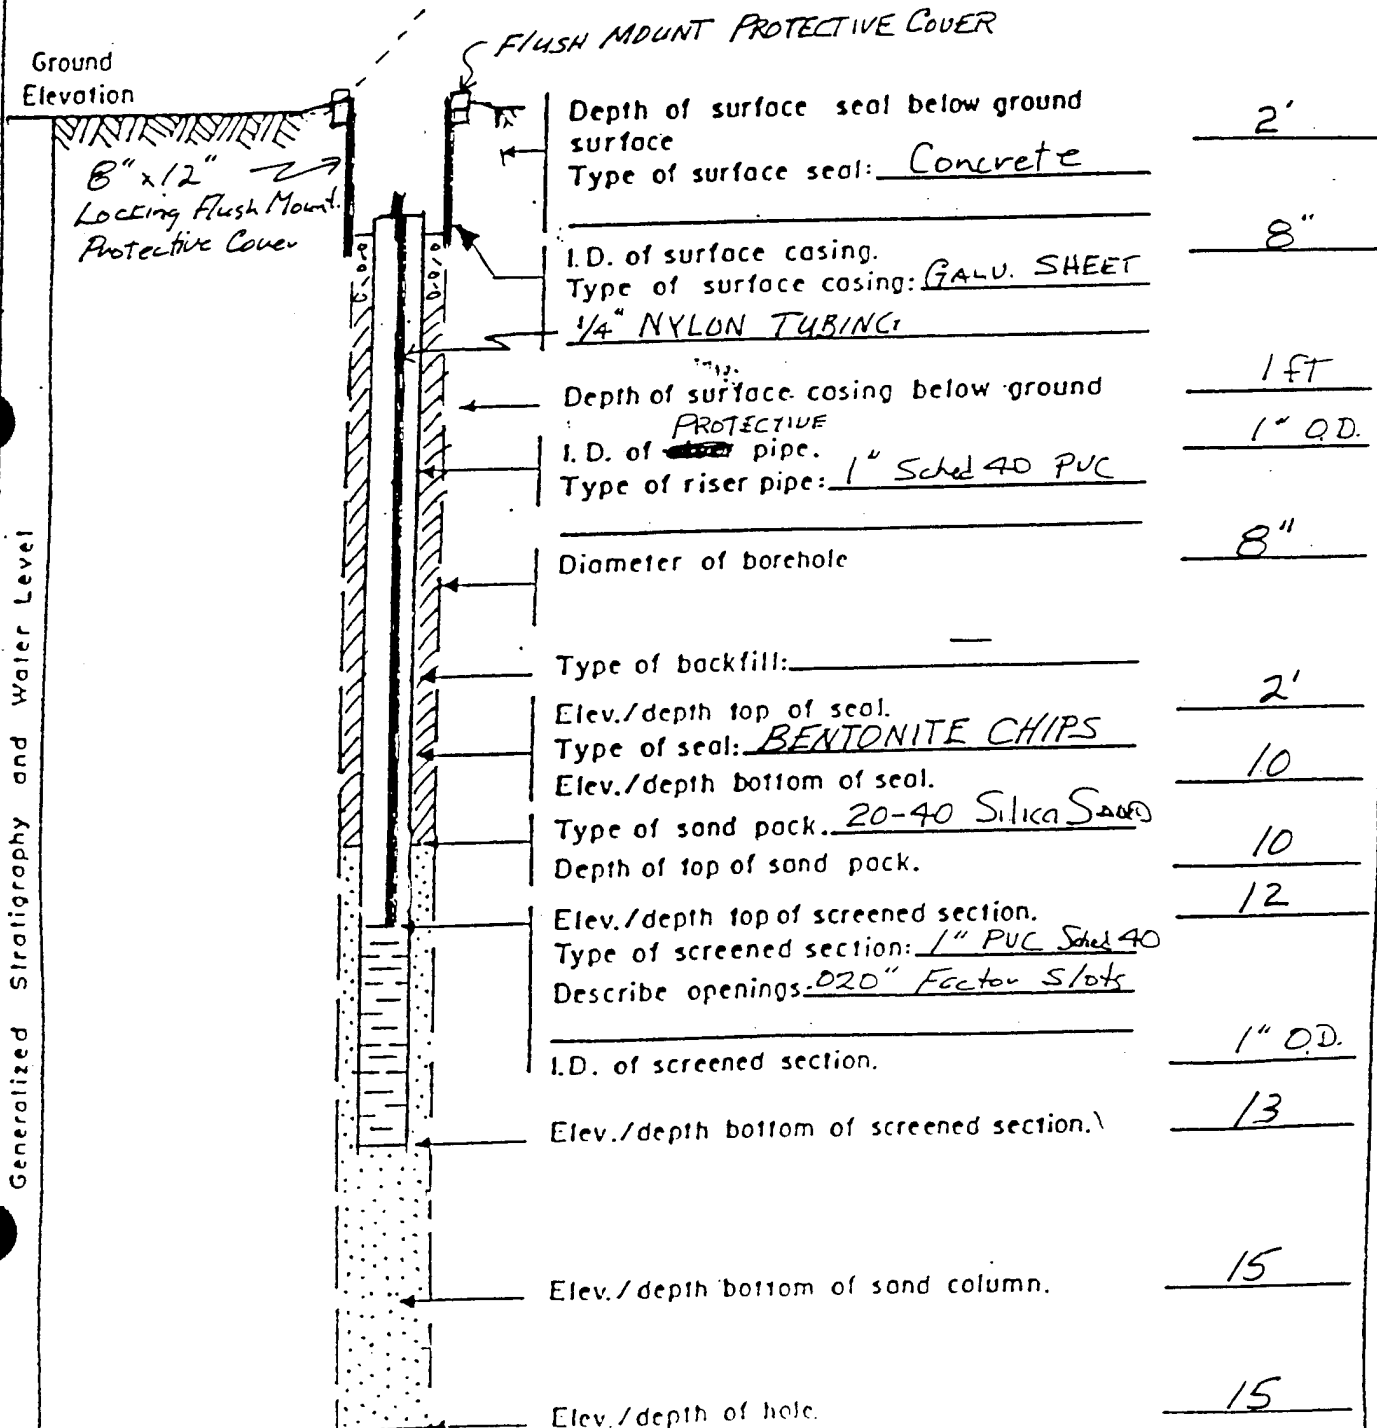 FLUSH MOUNT PROTECTIVE COVER
Ground
Elevation
8" x 12"
Locking Flush Mount.
Protective Cover
Generalized Stratigraphy and Water Level
Depth of surface seal below ground
surface
2'
Type of surface seal: Concrete
I.D. of surface casing.
8"
Type of surface casing: GALV. SHEET
1/4" NYLON TUBING
Depth of surface casing below ground
1 FT
PROTECTIVE
I.D. of pipe.
1" O.D.
Type of riser pipe: 1" Sched 40 PVC
Diameter of borehole
8"
Type of backfill: —
Elev./depth top of seal.
2'
Type of seal: BENTONITE CHIPS
Elev./depth bottom of seal.
10
Type of sand pack. 20-40 Silica SAND
Depth of top of sand pack.
10
Elev./depth top of screened section.
12
Type of screened section: 1" PVC Sched 40
Describe openings. .020" Factor Slots
I.D. of screened section.
1" O.D.
Elev./depth bottom of screened section.
13
Elev./depth bottom of sand column.
15
Elev./depth of hole.
15